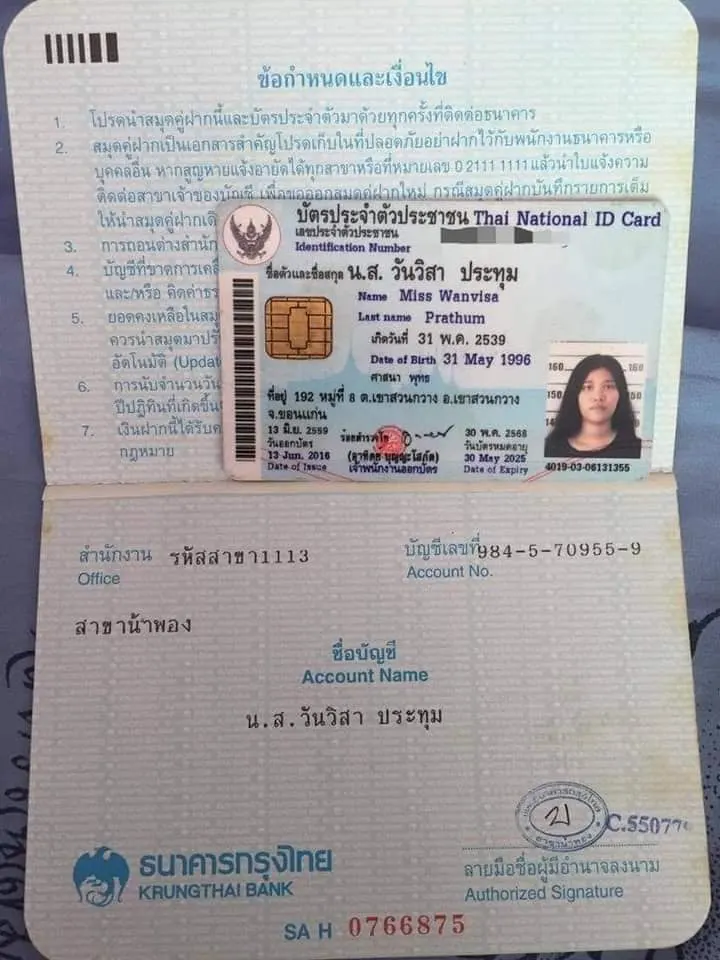 ข้อกำหนดและเงื่อนไข
1. โปรดนำสมุดคู่ฝากนี้และบัตรประจำตัวมาด้วยทุกครั้งที่ติดต่อธนาคาร
2. สมุดคู่ฝากเป็นเอกสารสำคัญโปรดเก็บในที่ปลอดภัยอย่าฝากไว้กับพนักงานธนาคารหรือ
บุคคลอื่น หากสูญหายแจ้งอายัดได้ทุกสาขาหรือที่หมายเลข 0 2111 1111 แล้วนำใบแจ้งความ
ติดต่อสาขาเจ้าของบัญชี เพื่อขอออกสมุดคู่ฝากใหม่ กรณีสมุดคู่ฝากบันทึกรายการเต็ม
ให้นำสมุดคู่ฝาก
3. การถอนต่างสำนัก
4. บัญชีที่ขาดการ
และ/หรือ คิดค่า
5. ยอดคงเหลือใน
ควรนำสมุดมา
อัตโนมัติ (Updat
6. การนับจำนวนวัน
ปีปฏิทินที่เกิดขึ้น
7. เงินฝากนี้ได้รับ
กฎหมาย
บัตรประจำตัวประชาชน Thai National ID Card
เลขประจำตัวประชาชน
Identification Number
ชื่อตัวและชื่อสกุล น.ส. วันวิสา ประทุม
Name Miss Wanvisa
Last name Prathum
เกิดวันที่ 31 พ.ค. 2539
Date of Birth 31 May 1996
ศาสนา พุทธ
ที่อยู่ 192 หมู่ที่ 8 ต.เขาสวนกวาง อ.เขาสวนกวาง
จ.ขอนแก่น
13 มิ.ย. 2559
วันออกบัตร
13 Jun. 2016
Date of Issue
เจ้าพนักงานออกบัตร
30 พ.ค. 2568
วันบัตรหมดอายุ
30 May 2025
Date of Expiry
160
150
4019-03-06131355
สำนักงาน รหัสสาขา1113
Office
บัญชีเลขที่ 984-5-70955-9
Account No.
สาขาน้ำพอง
ชื่อบัญชี
Account Name
น.ส.วันวิสา ประทุม
ธนาคารกรุงไทย
KRUNGTHAI BANK
C.5507
ลายมือชื่อผู้มีอำนาจลงนาม
Authorized Signature
SA H 0766875